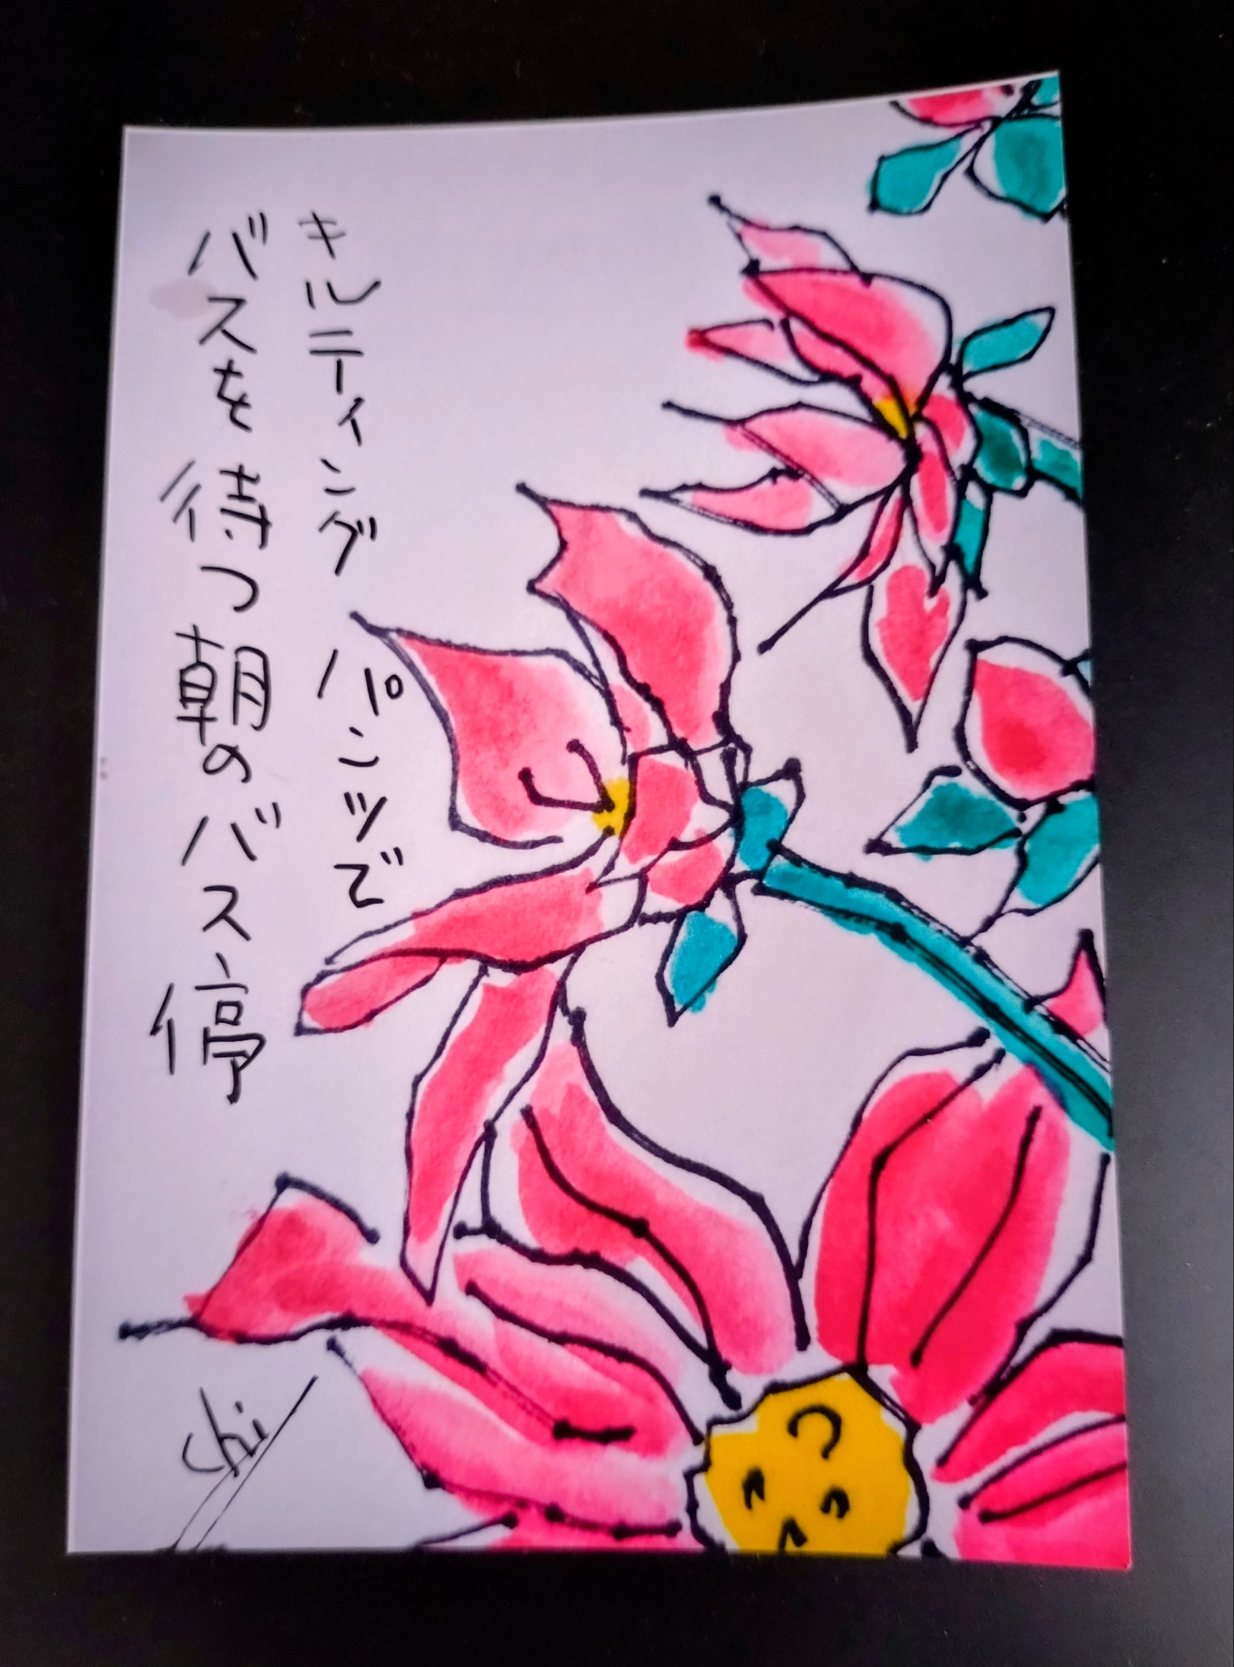 キルティングパンツで
バスを待つ朝のバス停
chi